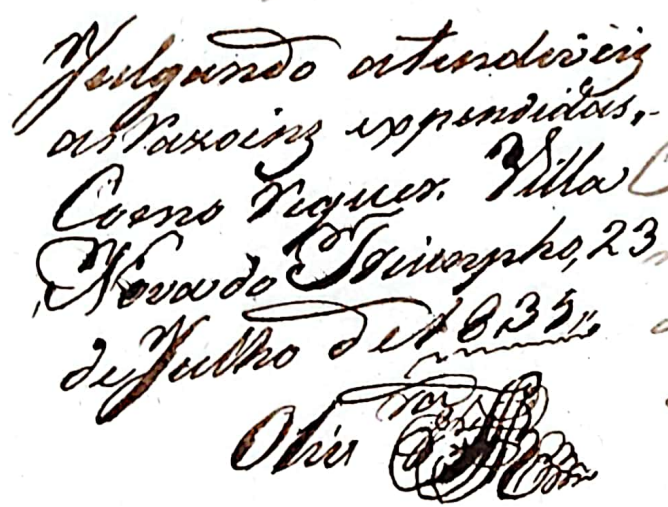 Julgando atendiveiz
as razoinz expendidas,
Como requer. Villa
Nova do Triumpho, 23
de Julho de 1835